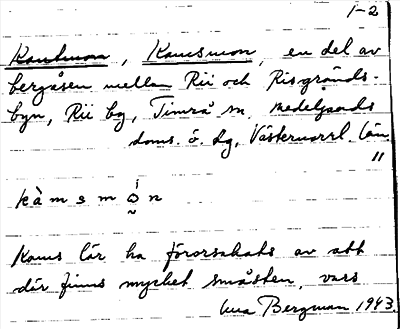 1-2
Kamsmon, en del av
bergåsen mellan Rii och Risgrånds-
byn, Rii by, Timrå sn. Medelpads
doms. ö. dg, Västernorrl. län.
"
k à m s m o n
Kams lär ha förorsakats av att
där finns mycket småsten, vars
Bergman 1943.